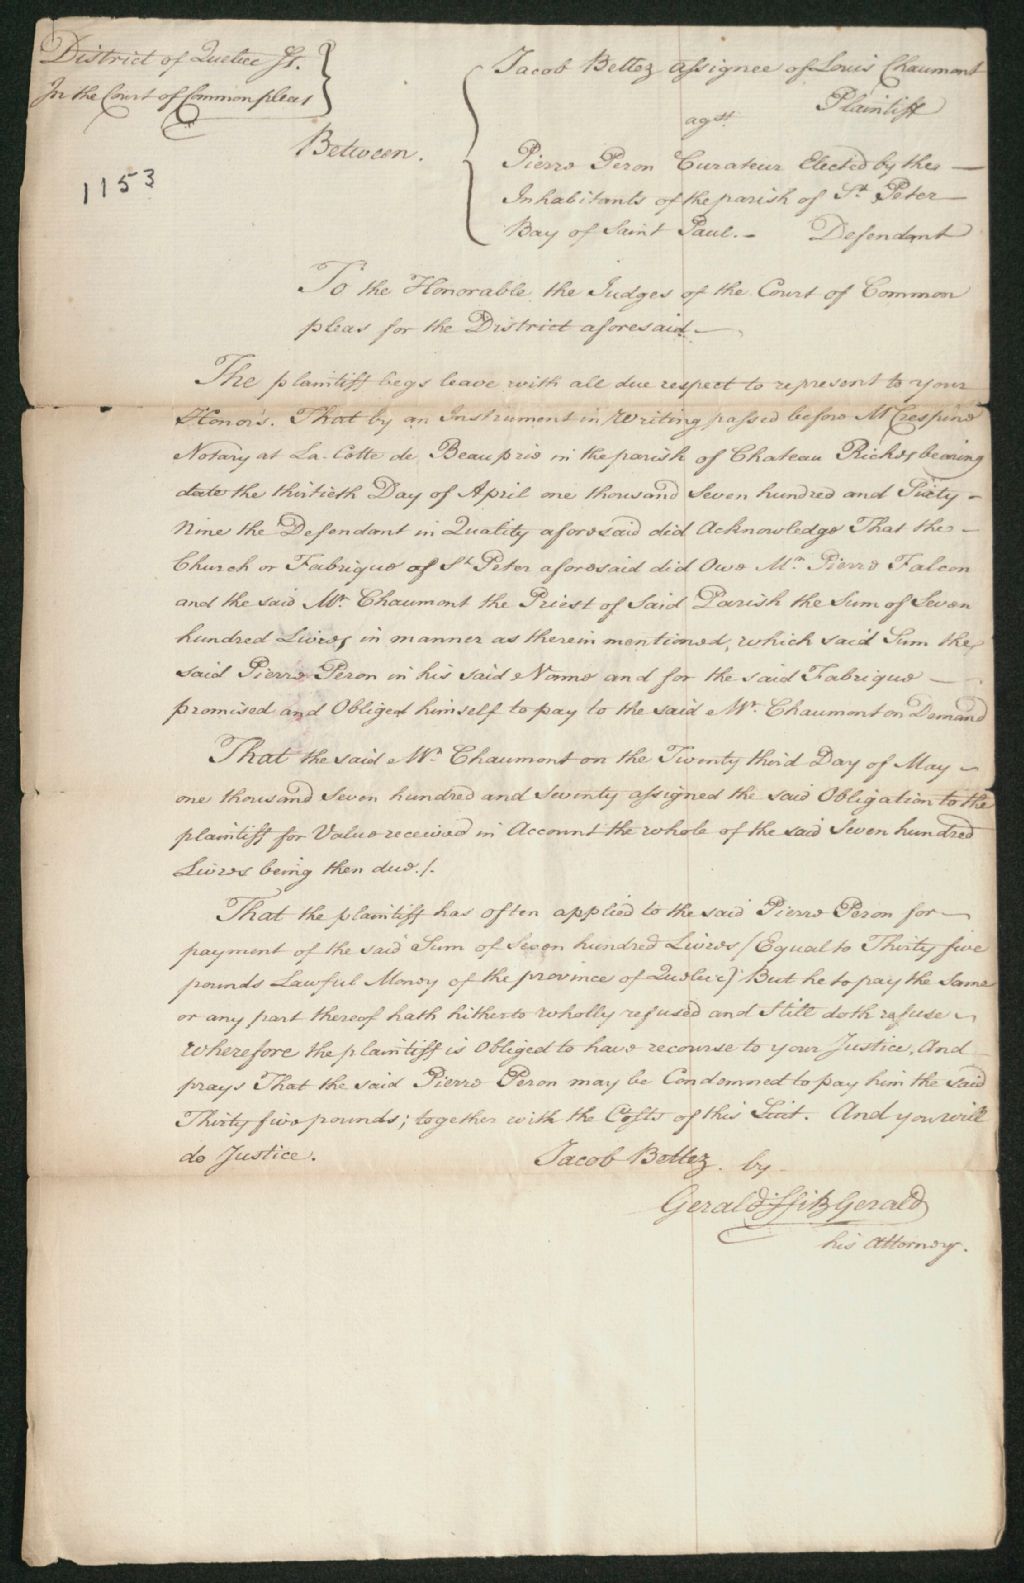 District of Quebec ss.
In the Court of Common pleas
1153
Between.
Jacob Bettez assignee of Louis Chaumont
Plaintiff
agst
Pierre Peron Curateur Elected by the
Inhabitants of the parish of St. Peter
Bay of Saint Paul. Defendant
To the Honorable the Judges of the Court of Common
pleas for the District aforesaid
The plaintiff begs leave with all due respect to represent to your
Honors. That by an Instrument in Writing passed before Mr Crespine
Notary at La Cotte de Beauprie in the parish of Chateau Richer bearing
date the thirtieth Day of April one thousand Seven hundred and Sixty
Nine the Defendant in Quality aforesaid did Acknowledge That the
Church or Fabrique of St. Peter aforesaid did Owe Mr. Pierre Falcon
and the said Mr. Chaumont the Priest of Said Parish the Sum of Seven
hundred Livres, in manner as therein mentioned, which said Sum the
said Pierre Peron in his said Name and for the said Fabrique
promised and Obliged himself to pay to the said Mr. Chaumont on Demand
That the said Mr. Chaumont on the Twenty third Day of May
one thousand Seven hundred and Seventy assigned the said Obligation to the
plaintiff for Value received in Account the whole of the said Seven hundred
Livres being then due./.
That the plaintiff has often applied to the said Pierre Peron for
payment of the said Sum of Seven hundred Livres (Equal to Thirty five
pounds Lawful Money of the province of Quebec) But he to pay the Same
or any part thereof hath hitherto wholly refused and Still doth refuse
Wherefore the plaintiff is Obliged to have recourse to your Justice, And
prays That the said Pierre Peron may be Condemned to pay him the said
Thirty five pounds; together with the Costs of this Suit. And you will
do Justice.
Jacob Bettez by
Gerald FitzGerald
his Attorney.